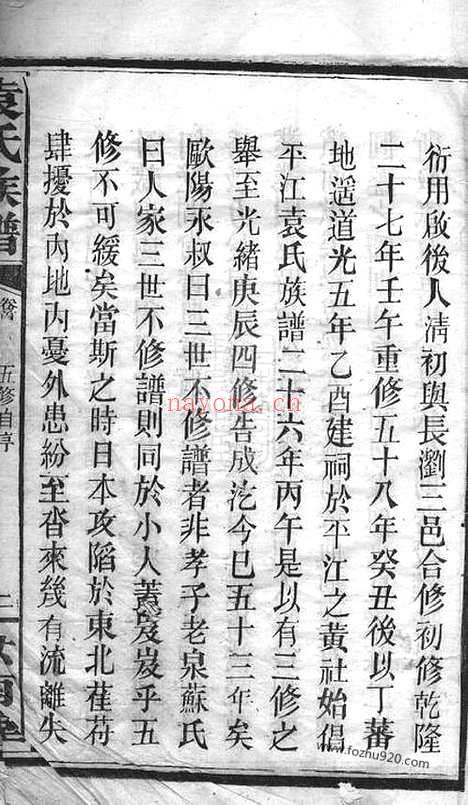 衍用啟後人淸初與長瀏二邑合修初修乾隆
二十七年壬午重修五十八年癸丑後以丁蕃
地遥道光五年乙酉建祠於平江之黄社始倡
平江袁氏族譜二十六年丙午是以有三修之
舉至光緒庚辰四修告成汔今巳五十三年矣
歐陽永叔曰三世不修譜者非孝子老泉蘇氏
曰人家三世不修譜則同於小人蓋岌岌乎五
修不可緩矣當斯之時日本攻陷於東北萑苻
肆擾於內地內憂外患紛至沓來幾有流離失
袁氏族譜
五修自序
nayona.cn
www.fozhu920.com